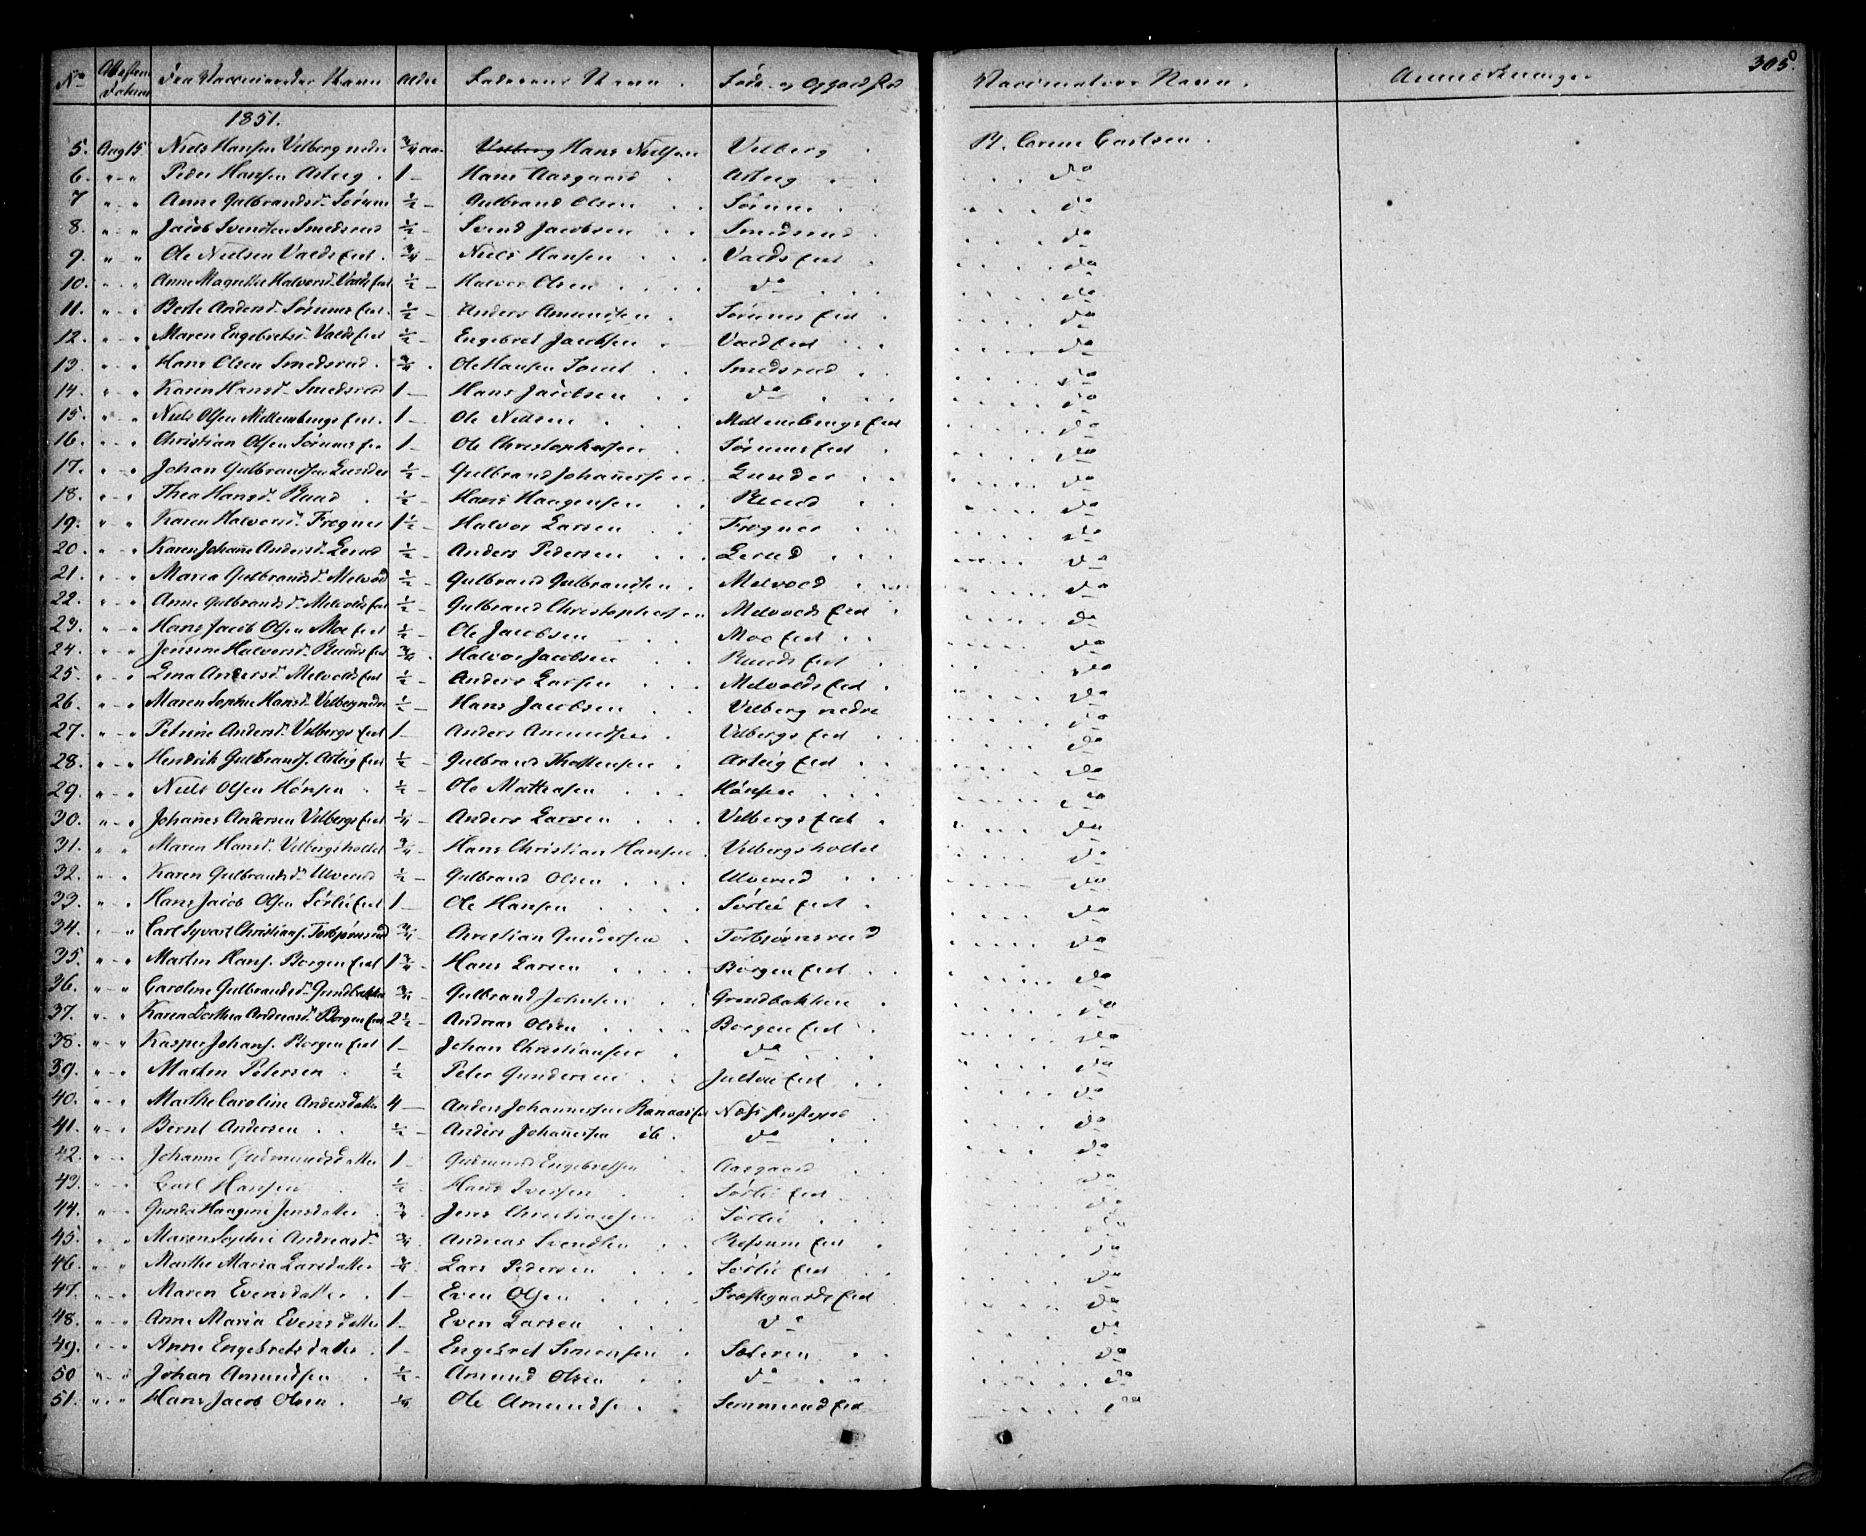 305.
No Attestens Datum De Vaccineredes Navn Alder Faderens Navn Føde- og Opholdsted Vaccinators Navn. Anmærkninger
1851.
5. Aug 15 Niels Hansen Vilberg nedre 3/4 aar Hans Nielsen Vilberg Pt. Corine Carlsen.
6. " - " Peder Hansen Asteig 1 - Hans Aasgaard Asteig do
7 " - " Anne Gulbrandsd. Sørum 1/2 - Gulbrand Olsen Sørum do
8. " - " Jacob Svendsen Smedsrud 1/2 - Svend Jacobsen Smedsrud do
9. " " Ole Nielsen Valds Eiet 3/4 Niels Hansen Valds Eiet do
10. " - " Anne Magrethe Halvorsd. Valds Eiet 1/2 - Halvor Olsen do do
11. " - " Berte Andersd. Sørums Eiet 1/2 - Anders Amundsen Sørums Eiet do
12. " - " Maren Engebretsd. Valds Eiet 1/2 Engebret Jacobsen Vald Eiet do
13. " - " Hans Olsen Smedsrud 3/4 Ole Hansen Smedsrud do
14. " - " Karen Hansd. Smedsrud 1 - Hans Jacobsen do do
15. " " Niels Olsen Mellembergs Eiet. 1 - Ole Nielsen Mellembergs Eiet do
16. " - " Christian Olsen Sørums Eie 1 - Ole Christophersen Sørums Eiet do
17. " - " Johan Gulbrandsen Lunder 1/2 - Gulbrand Johannessen Lunder do
18. " - " Thea Hansd. Ruud 1/2 - Hans Haagensen Ruud do
19. " - " Karen Halvorsd. Frogner 1 1/2 - Halvor Larsen Frogner do
20. " - " Karen Johanne Andersd. Lerud 1/2 - Anders Pedersen Lerud do
21. " - " Maria Gulbrandsd. Melvold 1/2 - Gulbrand Gulbrandsen Melvold do
22. " - " Anne Gulbrandsd. Melvolds Eiet 1/2 - Gulbrand Christophersen Melvolds Eiet do
23. " - " Hans Jacob Olsen Moe Eiet 1/2 - Ole Jacobsen Moe Eiet do
24. " - " Jensine Halvorsd. Ruuds Eiet 3/4 Halvor Jacobsen Ruuds Eiet do
25. " - " Lina Andersd. Melvolds Eiet 1/2 - Anders Larsen Melvolds Eiet do
26. " - " Maren Sophie Hansd. Vilberg nedre 1/2 - Hans Jacobsen Vilberg nedre do
27. " - " Petrine Andersd. Vilbergs Eiet 1 - Anders Amundsen Vilbergs Eiet do
28. " - " Hendrik Gulbrands. Asteig Eiet 1/2 - Gulbrand Thostensen Asteig Eiet do
29. " - " Niels Olsen Hønsen 1/2 - Ole Mathesen Hønsen do
30. " - " Johannes Andersen Vilbergs Eiet 1/4 - Anders Larsen Vilbergs Eiet do
31. " " Maren Hansd. Vilbergsholtet 3/4 - Hans Christian Hansen Vilbergsholtet do
32. " - " Karen Gulbrandsd. Ulverud 1/2 - Gulbrand Olsen Ulverud do
33. " - " Hans Jacob Olsen Sørlie Eiet 1 - Ole Hansen Sørlie Eiet do
34. " - " Carl Syvart Christians. Torbjørnsrud 3/4 - Christian Gundersen Torbjørnsrud do
35. " - " Martin Hans. Borgen Eiet 1 3/4 - Hans Larsen Borgen Eiet do
36. " - " Caroline Gulbrandsd. Grundbakken 3/4 - Gulbrand Johnsen Grundbakken do
37. " - " Karen Dorthea Andreasd. Borgen Eiet 2 1/2 - Andreas Olsen Borgen Eiet do
38. " - " Kasper Johans. Borgen Eiet 1 - Johan Christiansen do do
39. " - " Martin Petersen 1/2 Peter Gundersen Julton Eiet do
40. " - " Marthe Caroline Andersdatter 4 - Anders Johannessen Ranaas Eie Næs Præstegjeld do
41. " - " Bernt Andersen 1/2 - Anders Johannessen ib. do do
42. " - " Johanne Gudmundsdatter 1 - Gudmund Engebretsen Aasgaard do
43. " - " Carl Hansen 1/2 Hans Iversen Sørlie Eiet do
44. " - " Gunda Haagine Jensdatter 3/4 Jens Christiansen Sørlie do
45. " " Maren Sophie Andreasd. 3/4 Andreas Svendsen Refsum Eiet do
46. " - " Marthe Maria Larsdatter 3/4 Lars Pedersen Sørlie Eiet do
47. " - " Maren Evensdatter 1 - Even Olsen Præstegaards Eiet do
48. " - " Anne Maria Evensdatter 1 - Even Larsen do do
49. " - " Anne Engebretsdatter 1 - Engebret Simensen Sæteren do
50 " - " Johan Amundsen 1/2 - Amund Olsen do do
51. " - " Hans Jacob Olsen 1/4 Ole Amundse Semmerud Eiet do